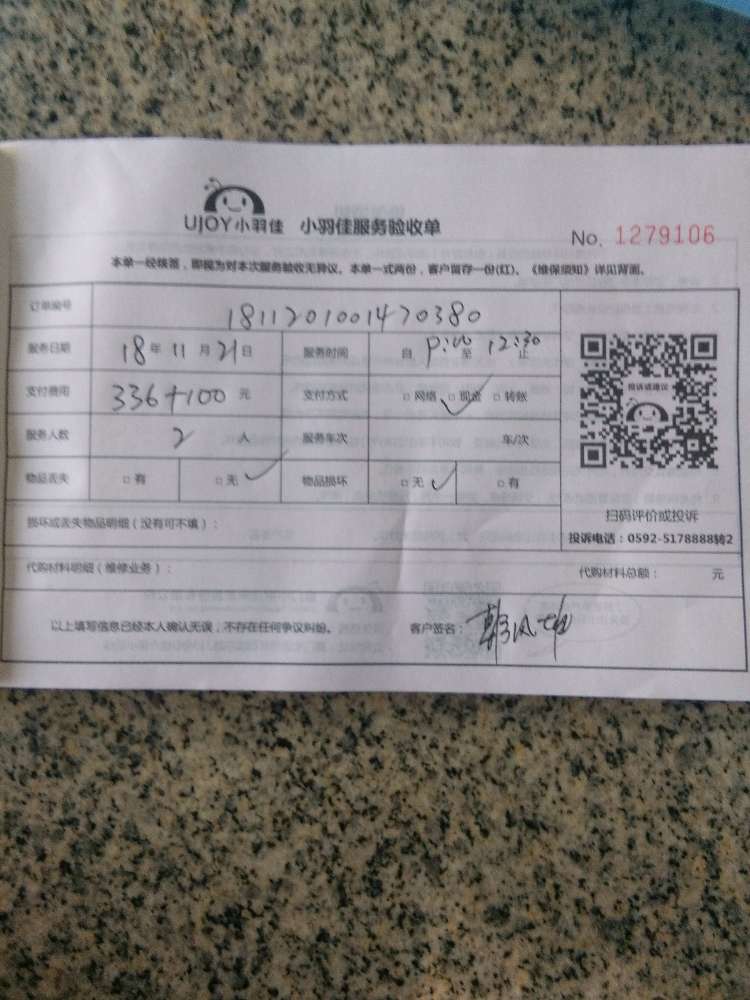 UJOY小羽佳 小羽佳服务验收单
No. 1279106
本单一经核签，即视为对本次服务验收无异议。本单一式两份，客户留存一份(红)。《维保须知》详见背面。
订单编号 1811201001470380
服务日期 18年11月21日 服务时间 自 至 12:30 止
支付费用 336+100 元 支付方式 □网络 □现金 ✓ □转账
服务人数 2 人 服务车次 车/次
物品丢失 □有 □无 ✓ 物品损坏 □无 ✓ □有
投诉或建议
扫码评价或投诉
损坏或丢失物品明细（没有可不填）：
投诉电话：0592-5178888转2
代购材料明细（维修业务）： 代购材料总额： 元
以上填写信息已经本人确认无误，不存在任何争议纠纷。 客户签名：